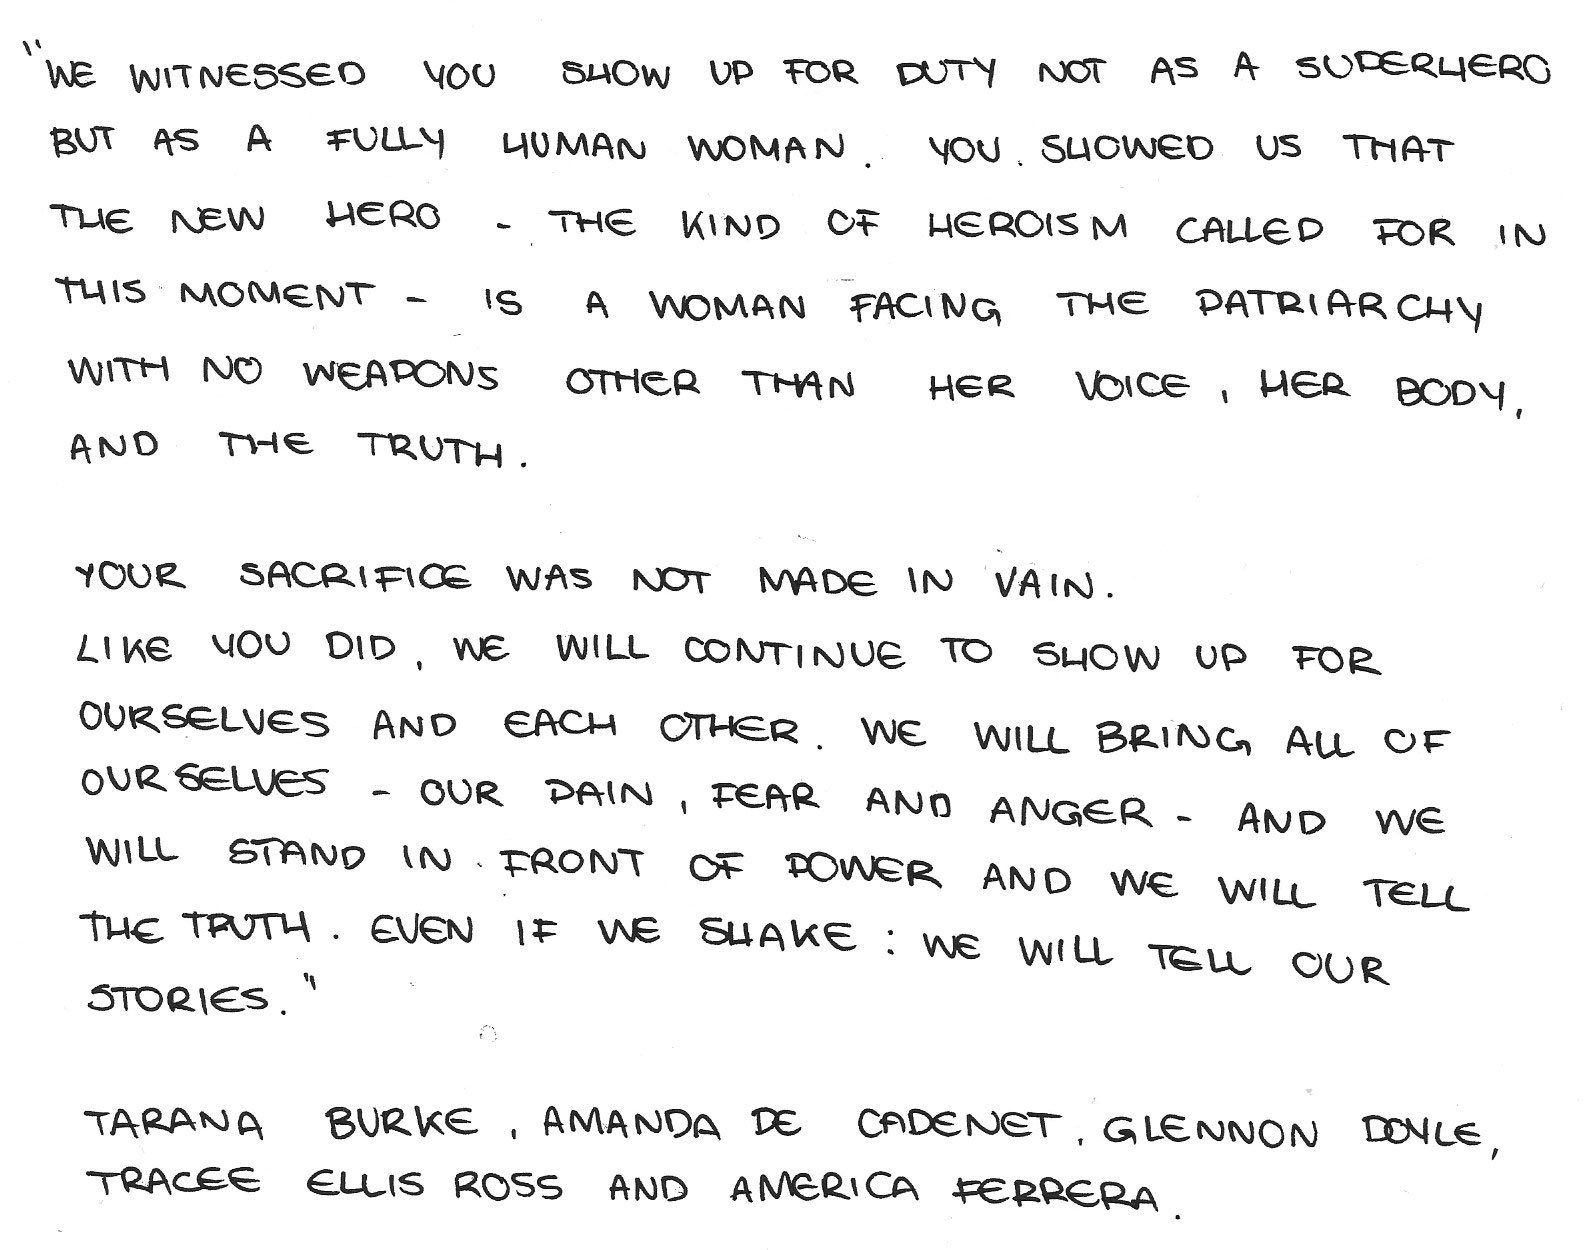 "WE WITNESSED YOU SHOW UP FOR DUTY NOT AS A SUPERHERO
BUT AS A FULLY HUMAN WOMAN. YOU SHOWED US THAT
THE NEW HERO - THE KIND OF HEROISM CALLED FOR IN
THIS MOMENT - IS A WOMAN FACING THE PATRIARCHY
WITH NO WEAPONS OTHER THAN HER VOICE, HER BODY,
AND THE TRUTH.
YOUR SACRIFICE WAS NOT MADE IN VAIN.
LIKE YOU DID, WE WILL CONTINUE TO SHOW UP FOR
OURSELVES AND EACH OTHER. WE WILL BRING ALL OF
OURSELVES - OUR PAIN, FEAR AND ANGER - AND WE
WILL STAND IN FRONT OF POWER AND WE WILL TELL
THE TRUTH. EVEN IF WE SHAKE: WE WILL TELL OUR
STORIES."
TARANA BURKE, AMANDA DE CADENET, GLENNON DOYLE,
TRACEE ELLIS ROSS AND AMERICA FERRERA.